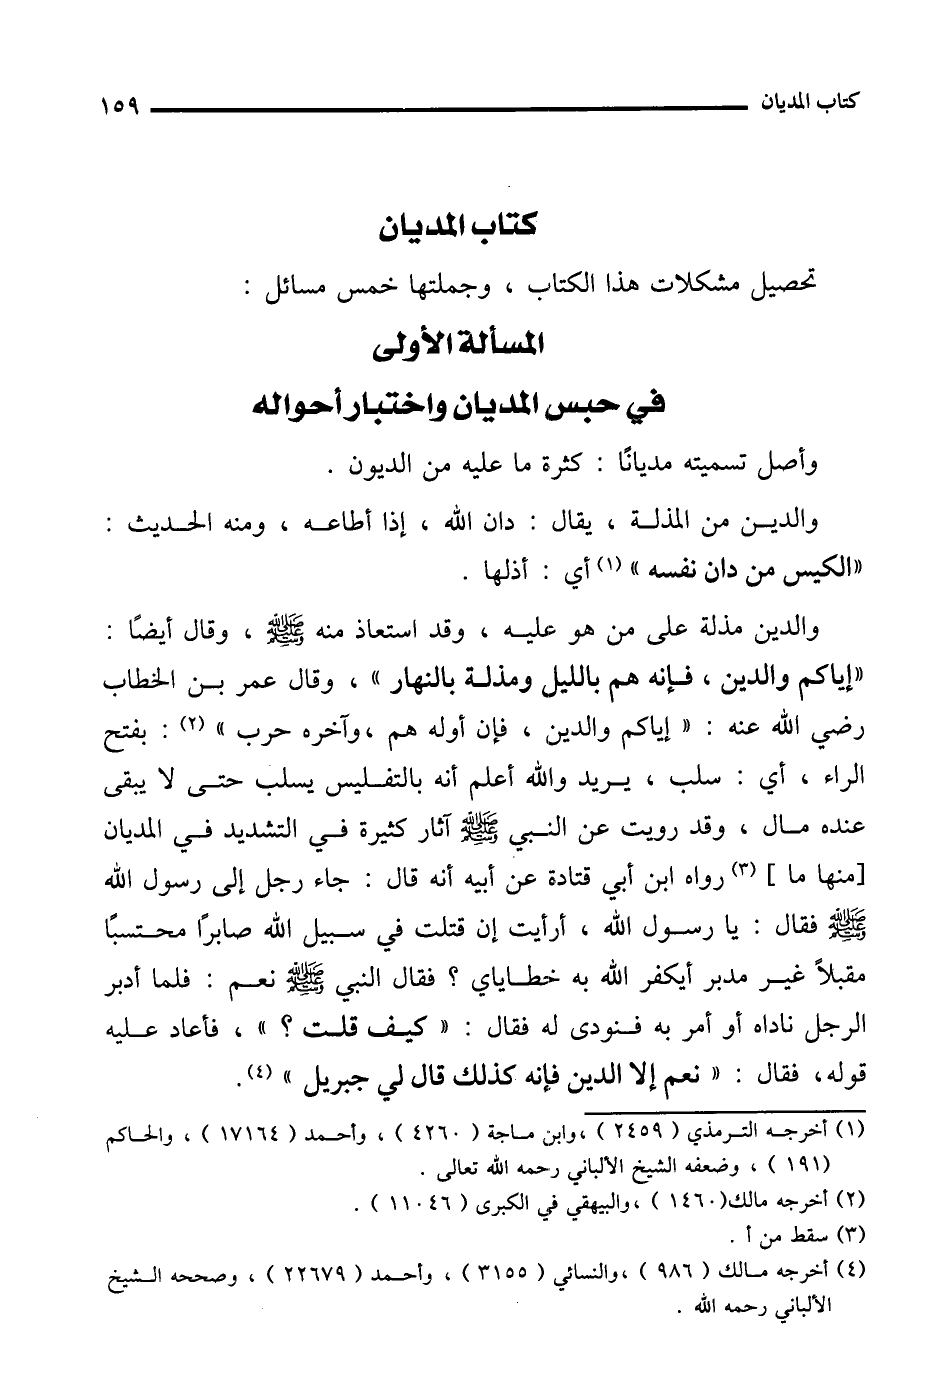 كتاب المديان ١٥٩
كتاب المديان
تحصيل مشكلات هذا الكتاب ، وجملتها خمس مسائل :
المسألة الأولى
في حبس المديان واختبار أحواله
وأصل تسميته مديانًا : كثرة ما عليه من الديون .
والديـن من المذلـة ، يقال : دان الله ، إذا أطاعـه ، ومنه الحـديث :
«الكيس من دان نفسه » (١) أي : أذلها .
والدين مذلة على من هو عليـه ، وقد استعاذ منه ﷺ ، وقال أيضًا :
«إياكم والدين ، فـإنه هم بالليل ومذلـة بالنهار » ، وقال عمر بـن الخطاب
رضي الله عنه : « إياكم والدين ، فإن أوله هم ،وآخره حرب » (٢) : بفتح
الراء ، أي : سلب ، يـريد والله أعلم أنه بالتفـليس يسلب حتـى لا يبقى
عنده مـال ، وقد رويت عن النـبي ﷺ آثار كثيرة فـي التشديد فـي المديان
[منها ما ] (٣) رواه ابن أبي قتادة عن أبيه أنه قال : جاء رجل إلى رسول الله
ﷺ فقال : يا رسـول الله ، أرأيت إن قتلت في سـبيل الله صابرًا محـتسبًا
مقبلاً غيـر مدبر أيكفر الله به خطـاياي ؟ فقال النبي ﷺ نعـم : فلما أدبر
الرجل ناداه أو أمر به فـنودى له فقال : « كيـف قلـت ؟ » ، فأعاد عـليه
قوله، فقال : « نعم إلا الدين فإنه كذلك قال لي جبريل » (٤).
(١) أخرجـه التـرمذي ( ٢٤٥٩ ) ،وابن مـاجة ( ٤٢٦٠ ) ، وأحـمد ( ١٧١٦٤ ) ، والحـاكم
(١٩١ ) ، وضعفه الشيخ الألباني رحمه الله تعالى .
(٢) أخرجه مالك(١٤٦٠ ) ،والبيهقي في الكبرى ( ١١٠٤٦ ) .
(٣) سقط من أ .
(٤) أخرجه مـالك ( ٩٨٦ ) ،والنسائي ( ٣١٥٥ ) ، وأحـمد ( ٢٢٦٧٩ ) ، وصححه الـشيخ
الألباني رحمه الله .